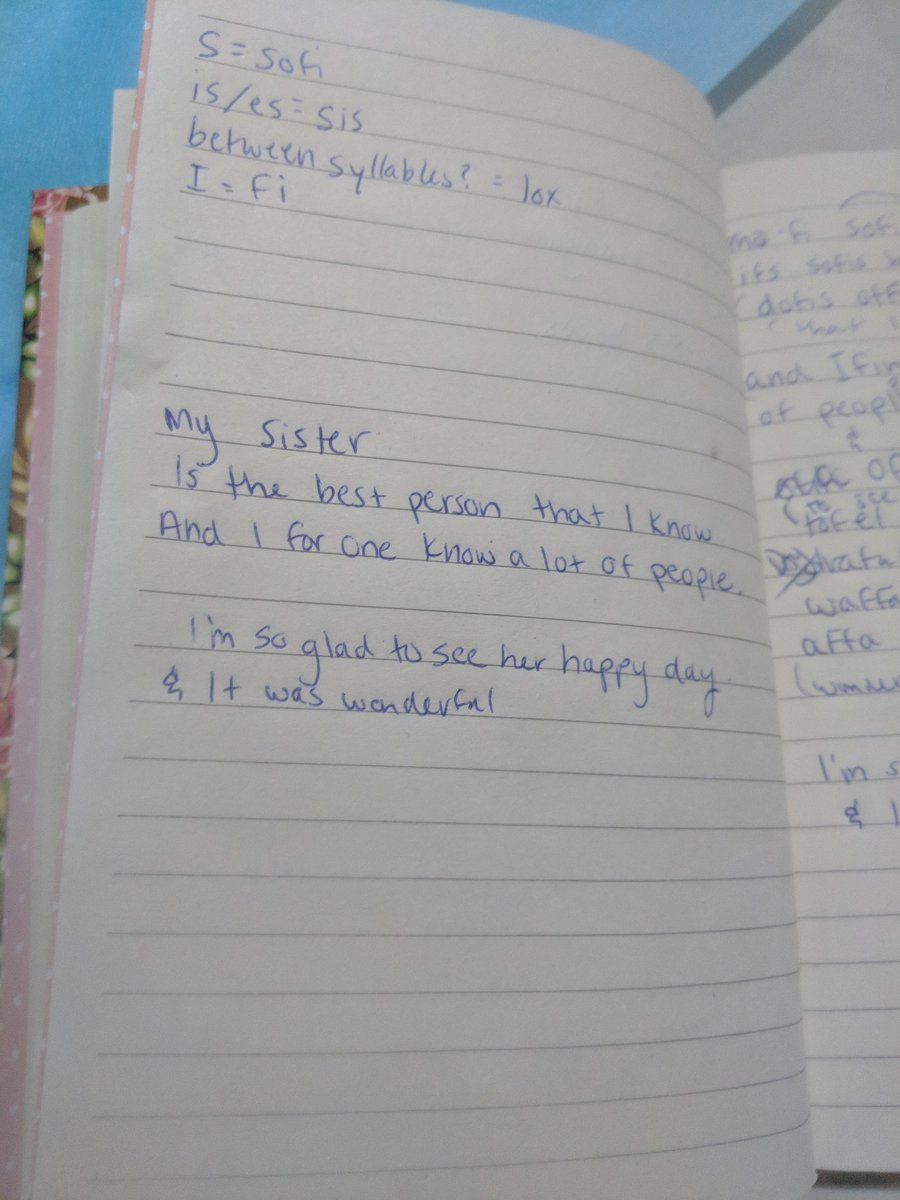 S = Sofi
is/es = sis
between syllables? = lox
I = Fi
My sister
is the best person that I know.
And I for one know a lot of people.
I'm so glad to see her happy day.
& It was wonderful
its sofis
that
and I
of peopl
&
of
see
waffa
affa
I'm s
&